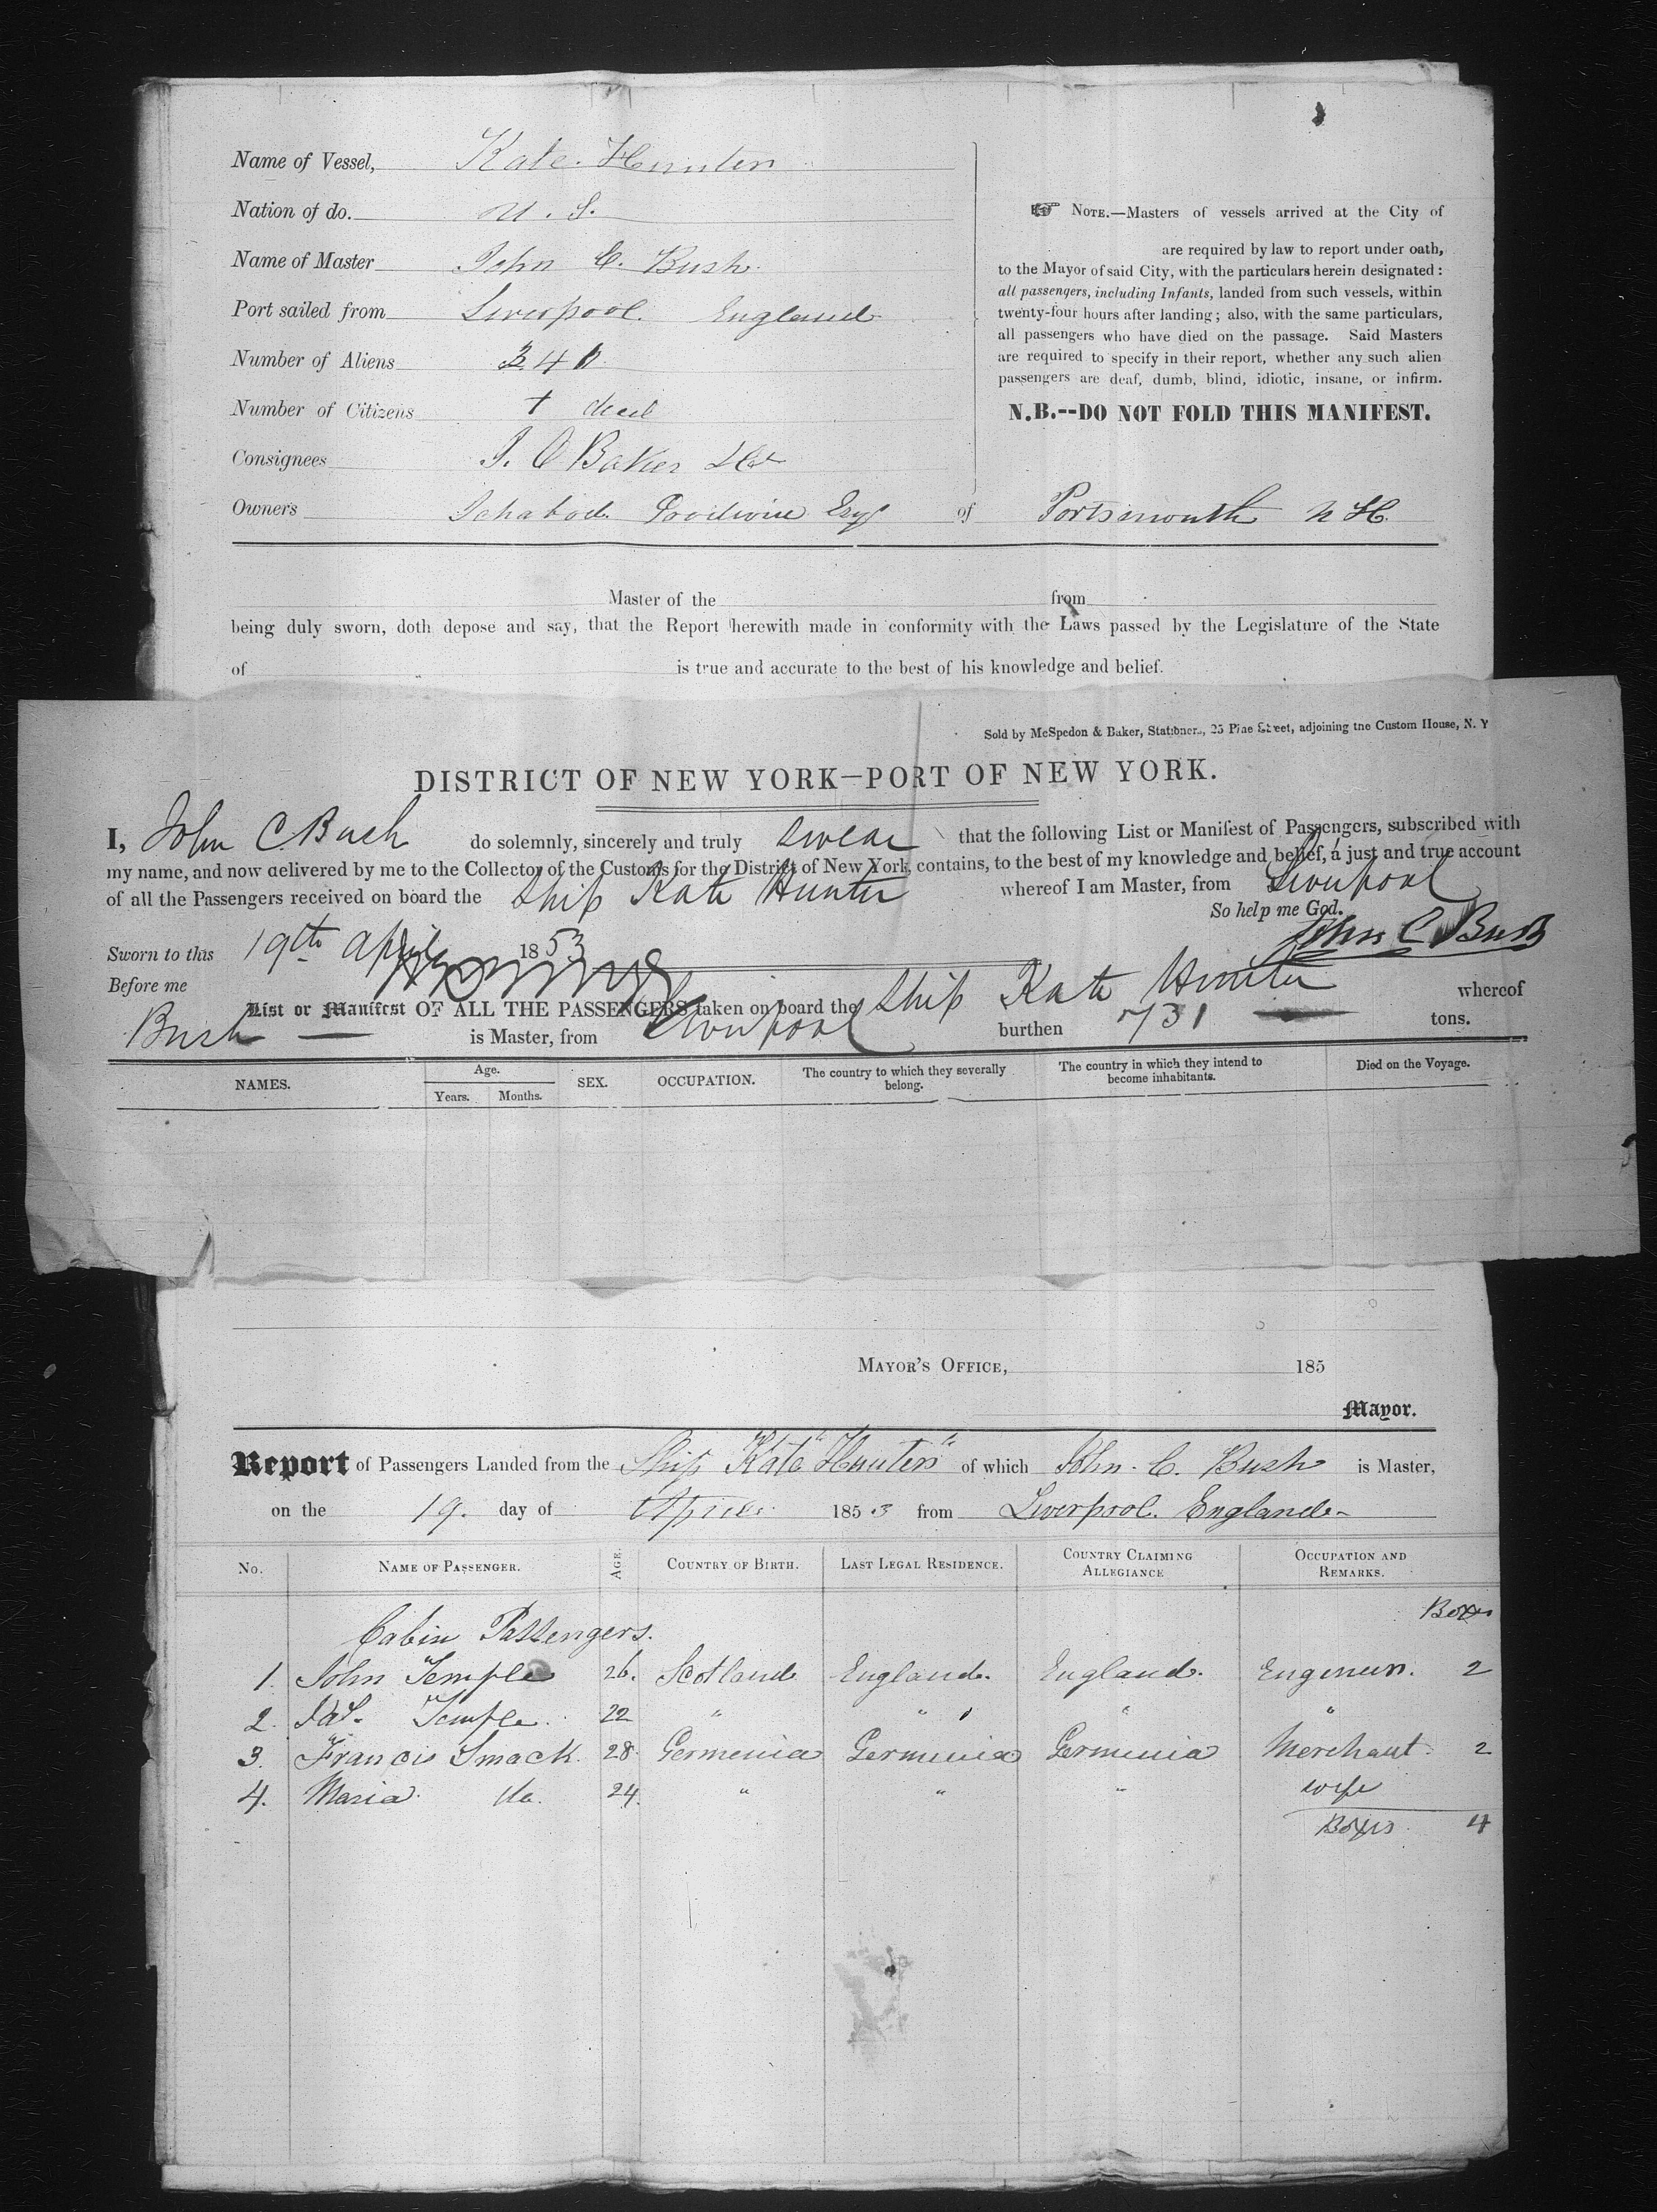 Name of Vessel, Kate Hunter
Nation of do. U. S.
Name of Master John C. Bush
Port sailed from Liverpool. England
Number of Aliens
Number of Citizens † dead
Consignees J. O Baker
Owners Ichabod Goodwin Esq of Portsmouth N H.
☞ NOTE.—Masters of vessels arrived at the City of
are required by law to report under oath,
to the Mayor of said City, with the particulars herein designated:
all passengers, including Infants, landed from such vessels, within
twenty-four hours after landing; also, with the same particulars,
all passengers who have died on the passage. Said Masters
are required to specify in their report, whether any such alien
passengers are deaf, dumb, blind, idiotic, insane, or infirm.
N.B.--DO NOT FOLD THIS MANIFEST.
Master of the from
being duly sworn, doth depose and say, that the Report herewith made in conformity with the Laws passed by the Legislature of the State
of is true and accurate to the best of his knowledge and belief.
Sold by McSpedon & Baker, Stationers, 25 Pine Street, adjoining the Custom House, N. Y
DISTRICT OF NEW YORK—PORT OF NEW YORK.
I, John C Bush do solemnly, sincerely and truly swear that the following List or Manifest of Passengers, subscribed with
my name, and now delivered by me to the Collector of the Customs for the District of New York, contains, to the best of my knowledge and belief, a just and true account
of all the Passengers received on board the Ship Kate Hunter whereof I am Master, from Liverpool
So help me God.
Sworn to this 19th April 1853 John C Bush
Before me
List or Manifest OF ALL THE PASSENGERS taken on board the Ship Kate Hunter whereof
Bush is Master, from Liverpool burthen 731 tons.
NAMES. Age. Years. Months. SEX. OCCUPATION. The country to which they severally belong. The country in which they intend to become inhabitants. Died on the Voyage.
MAYOR'S OFFICE, 185
Mayor.
Report of Passengers Landed from the Ship "Kate Hunter" of which John C. Bush is Master,
on the 19. day of April 1853 from Liverpool. England
No. NAME OF PASSENGER. AGE. COUNTRY OF BIRTH. LAST LEGAL RESIDENCE. COUNTRY CLAIMING ALLEGIANCE OCCUPATION AND REMARKS.
Boxes
Cabin Passengers.
1. John Temple 26. Scotland England. England. Engineer. 2
2. Temple. 22 " " " "
3. Francis Smack. 28. Germenia Germenia Germenia Merchant 2
4. Maria do. 24. " " " wife
Boxes 4